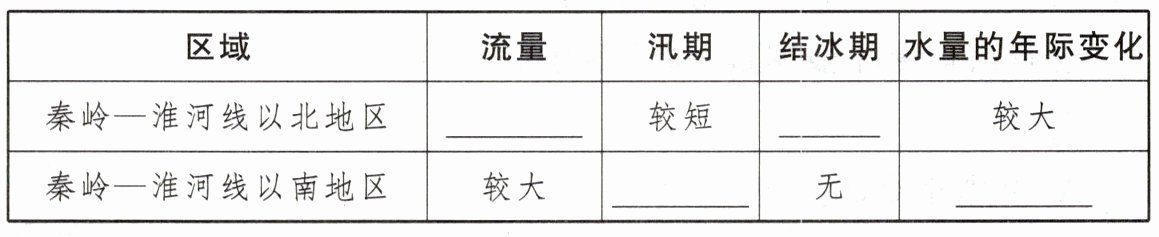 区域 流量 汛期 结冰期 水量的年际变化
秦岭—淮河线以北地区 ________ 较短 ______ 较大
秦岭—淮河线以南地区 较大 ________ 无 ________